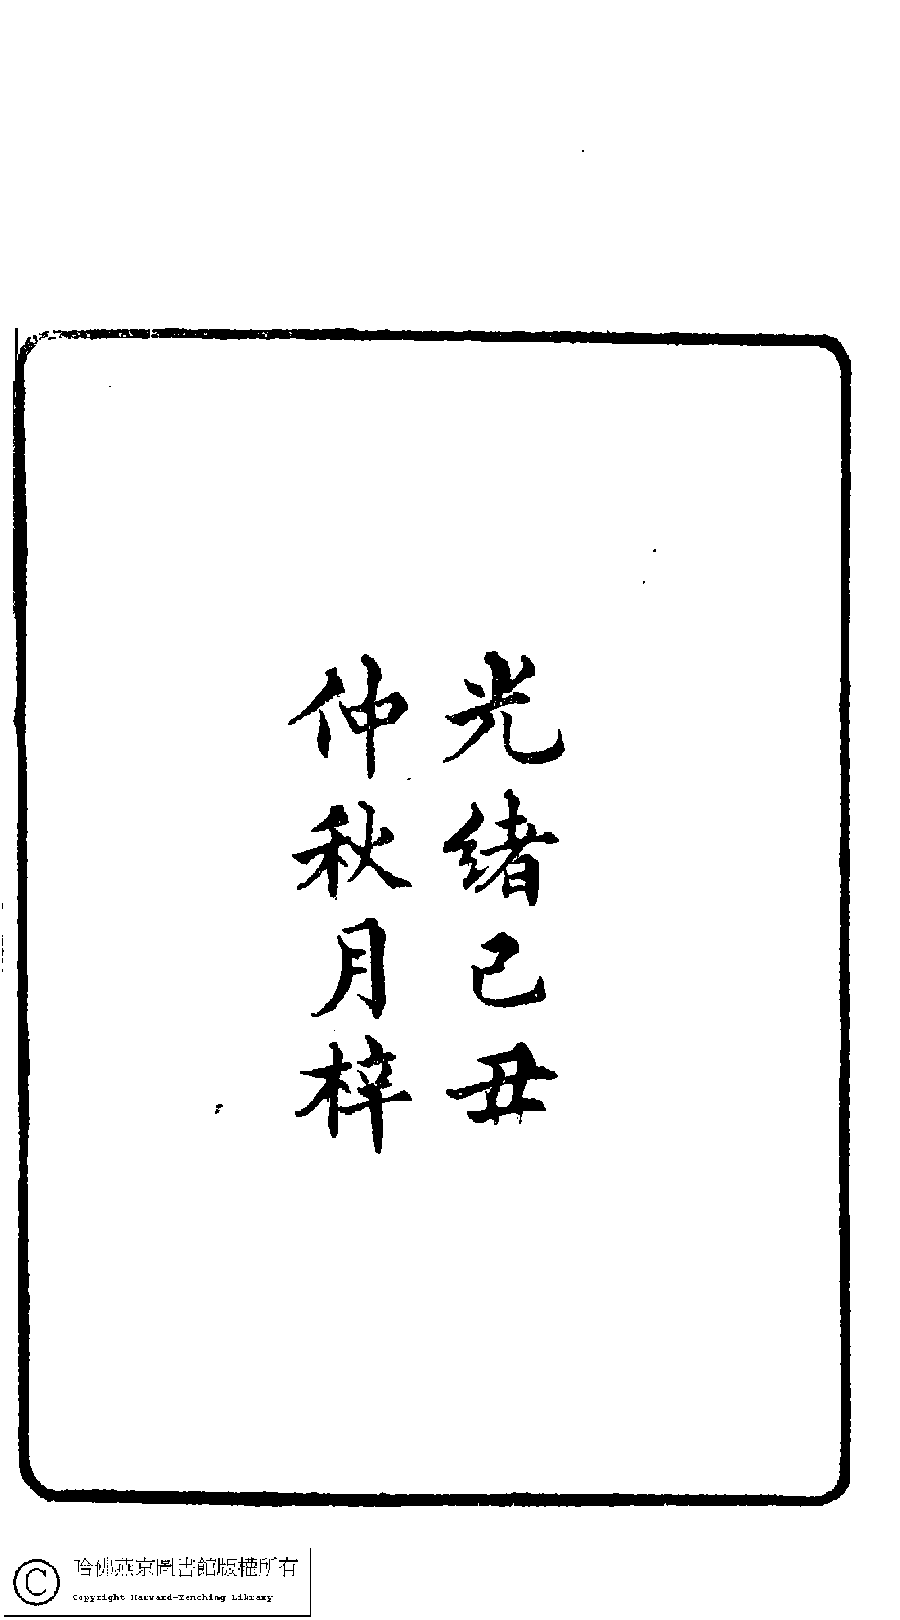 光緒己丑
仲秋月梓
哈佛燕京圖書館版權所有
Copyright Harvard-Yenching Library